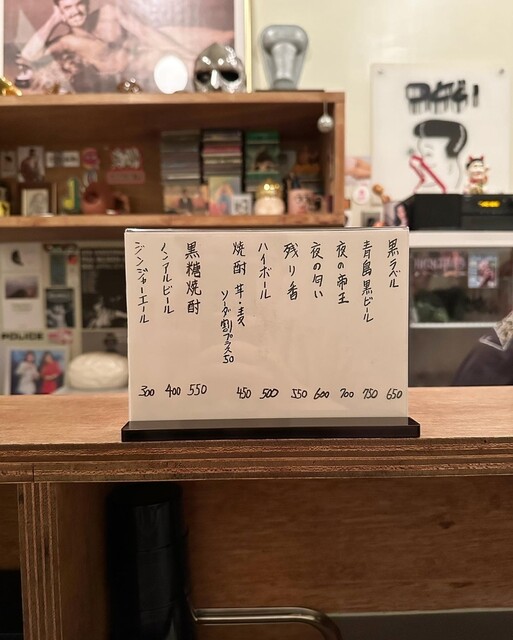 黒ラベル 650
青島黒ビール 750
夜の帝王 700
夜の匂い 600
残り香 550
ハイボール 500
焼酎 芋・麦 450
ソーダ割プラス50
黒糖焼酎 550
ノンアルビール 400
ジンジャーエール 300
POLICE